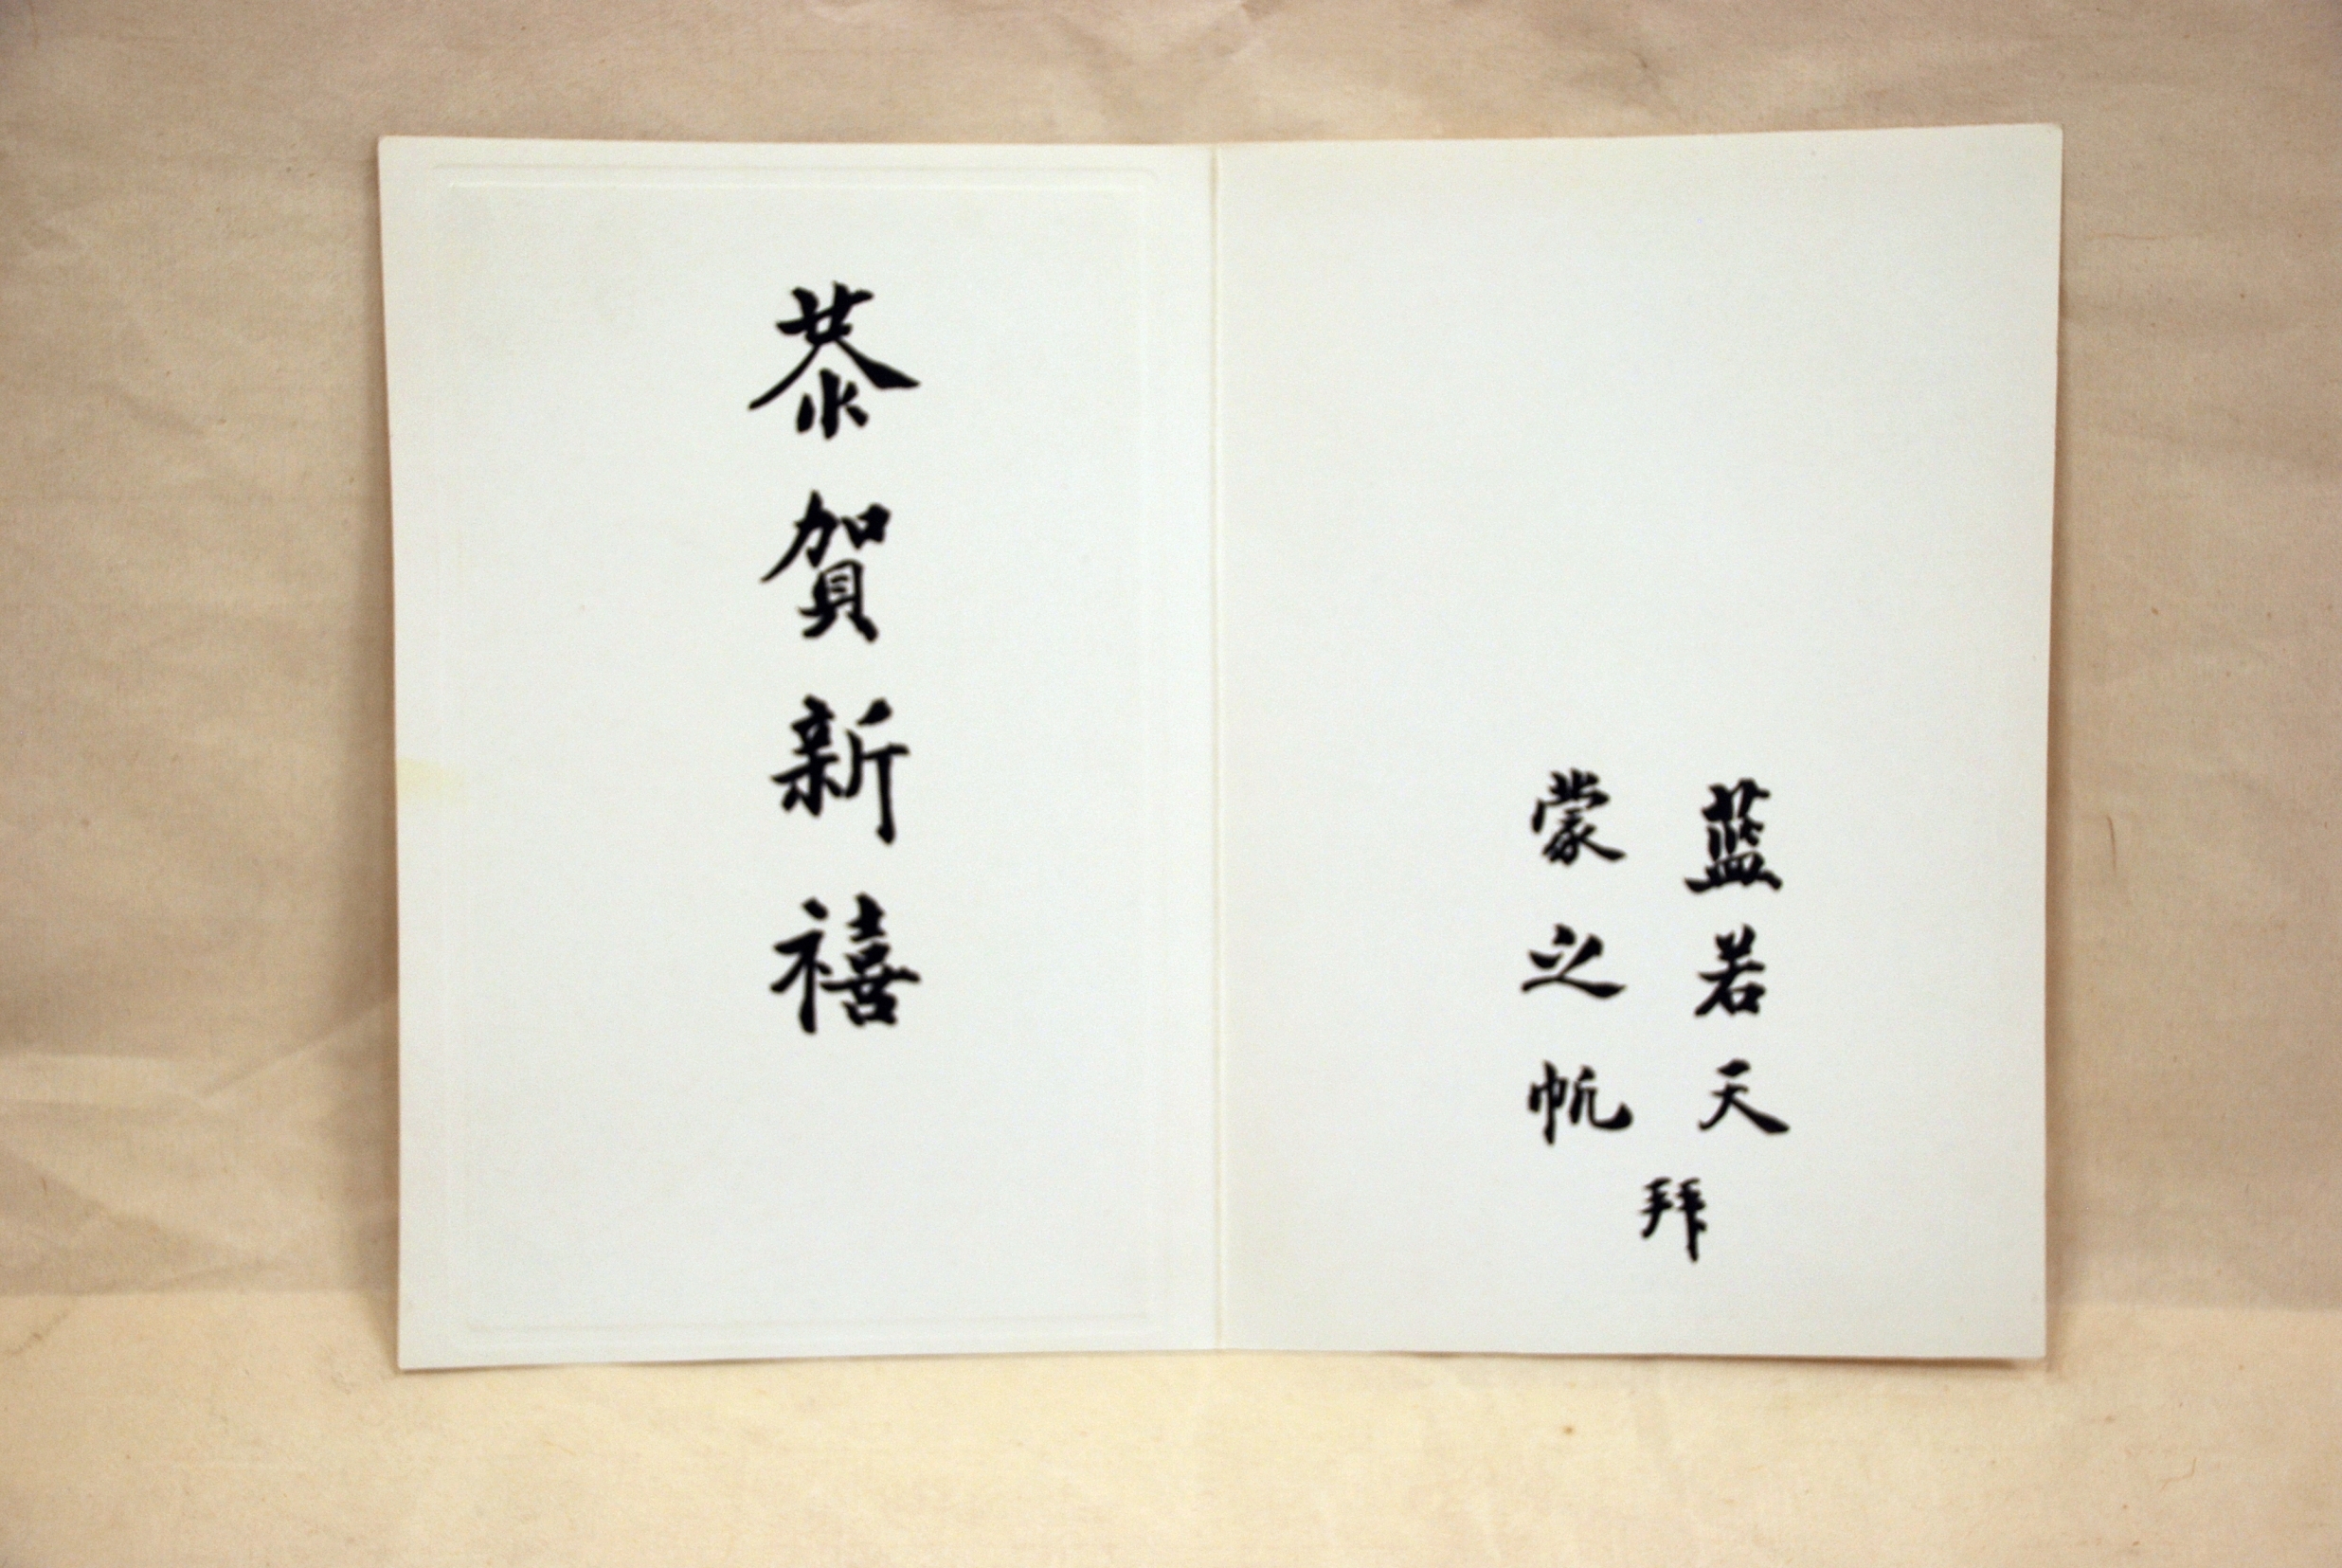 恭賀新禧
藍若天
蒙之帆
拜